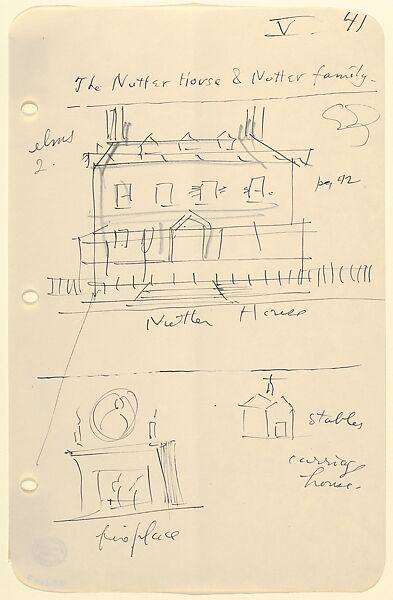 V. 41
The Nutter House & Nutter family.
elms
2.
pg 42
Nutter House
stables
carriag
house.
fireplace